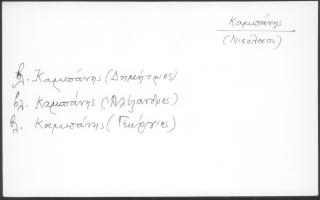 Καμπάνης
(Νικόλαος)
βλ. Καμπάνης (Δημήτριος)
βλ. Καμπάνης (Αλέξανδρος)
βλ. Καμπάνης (Γεώργιος)